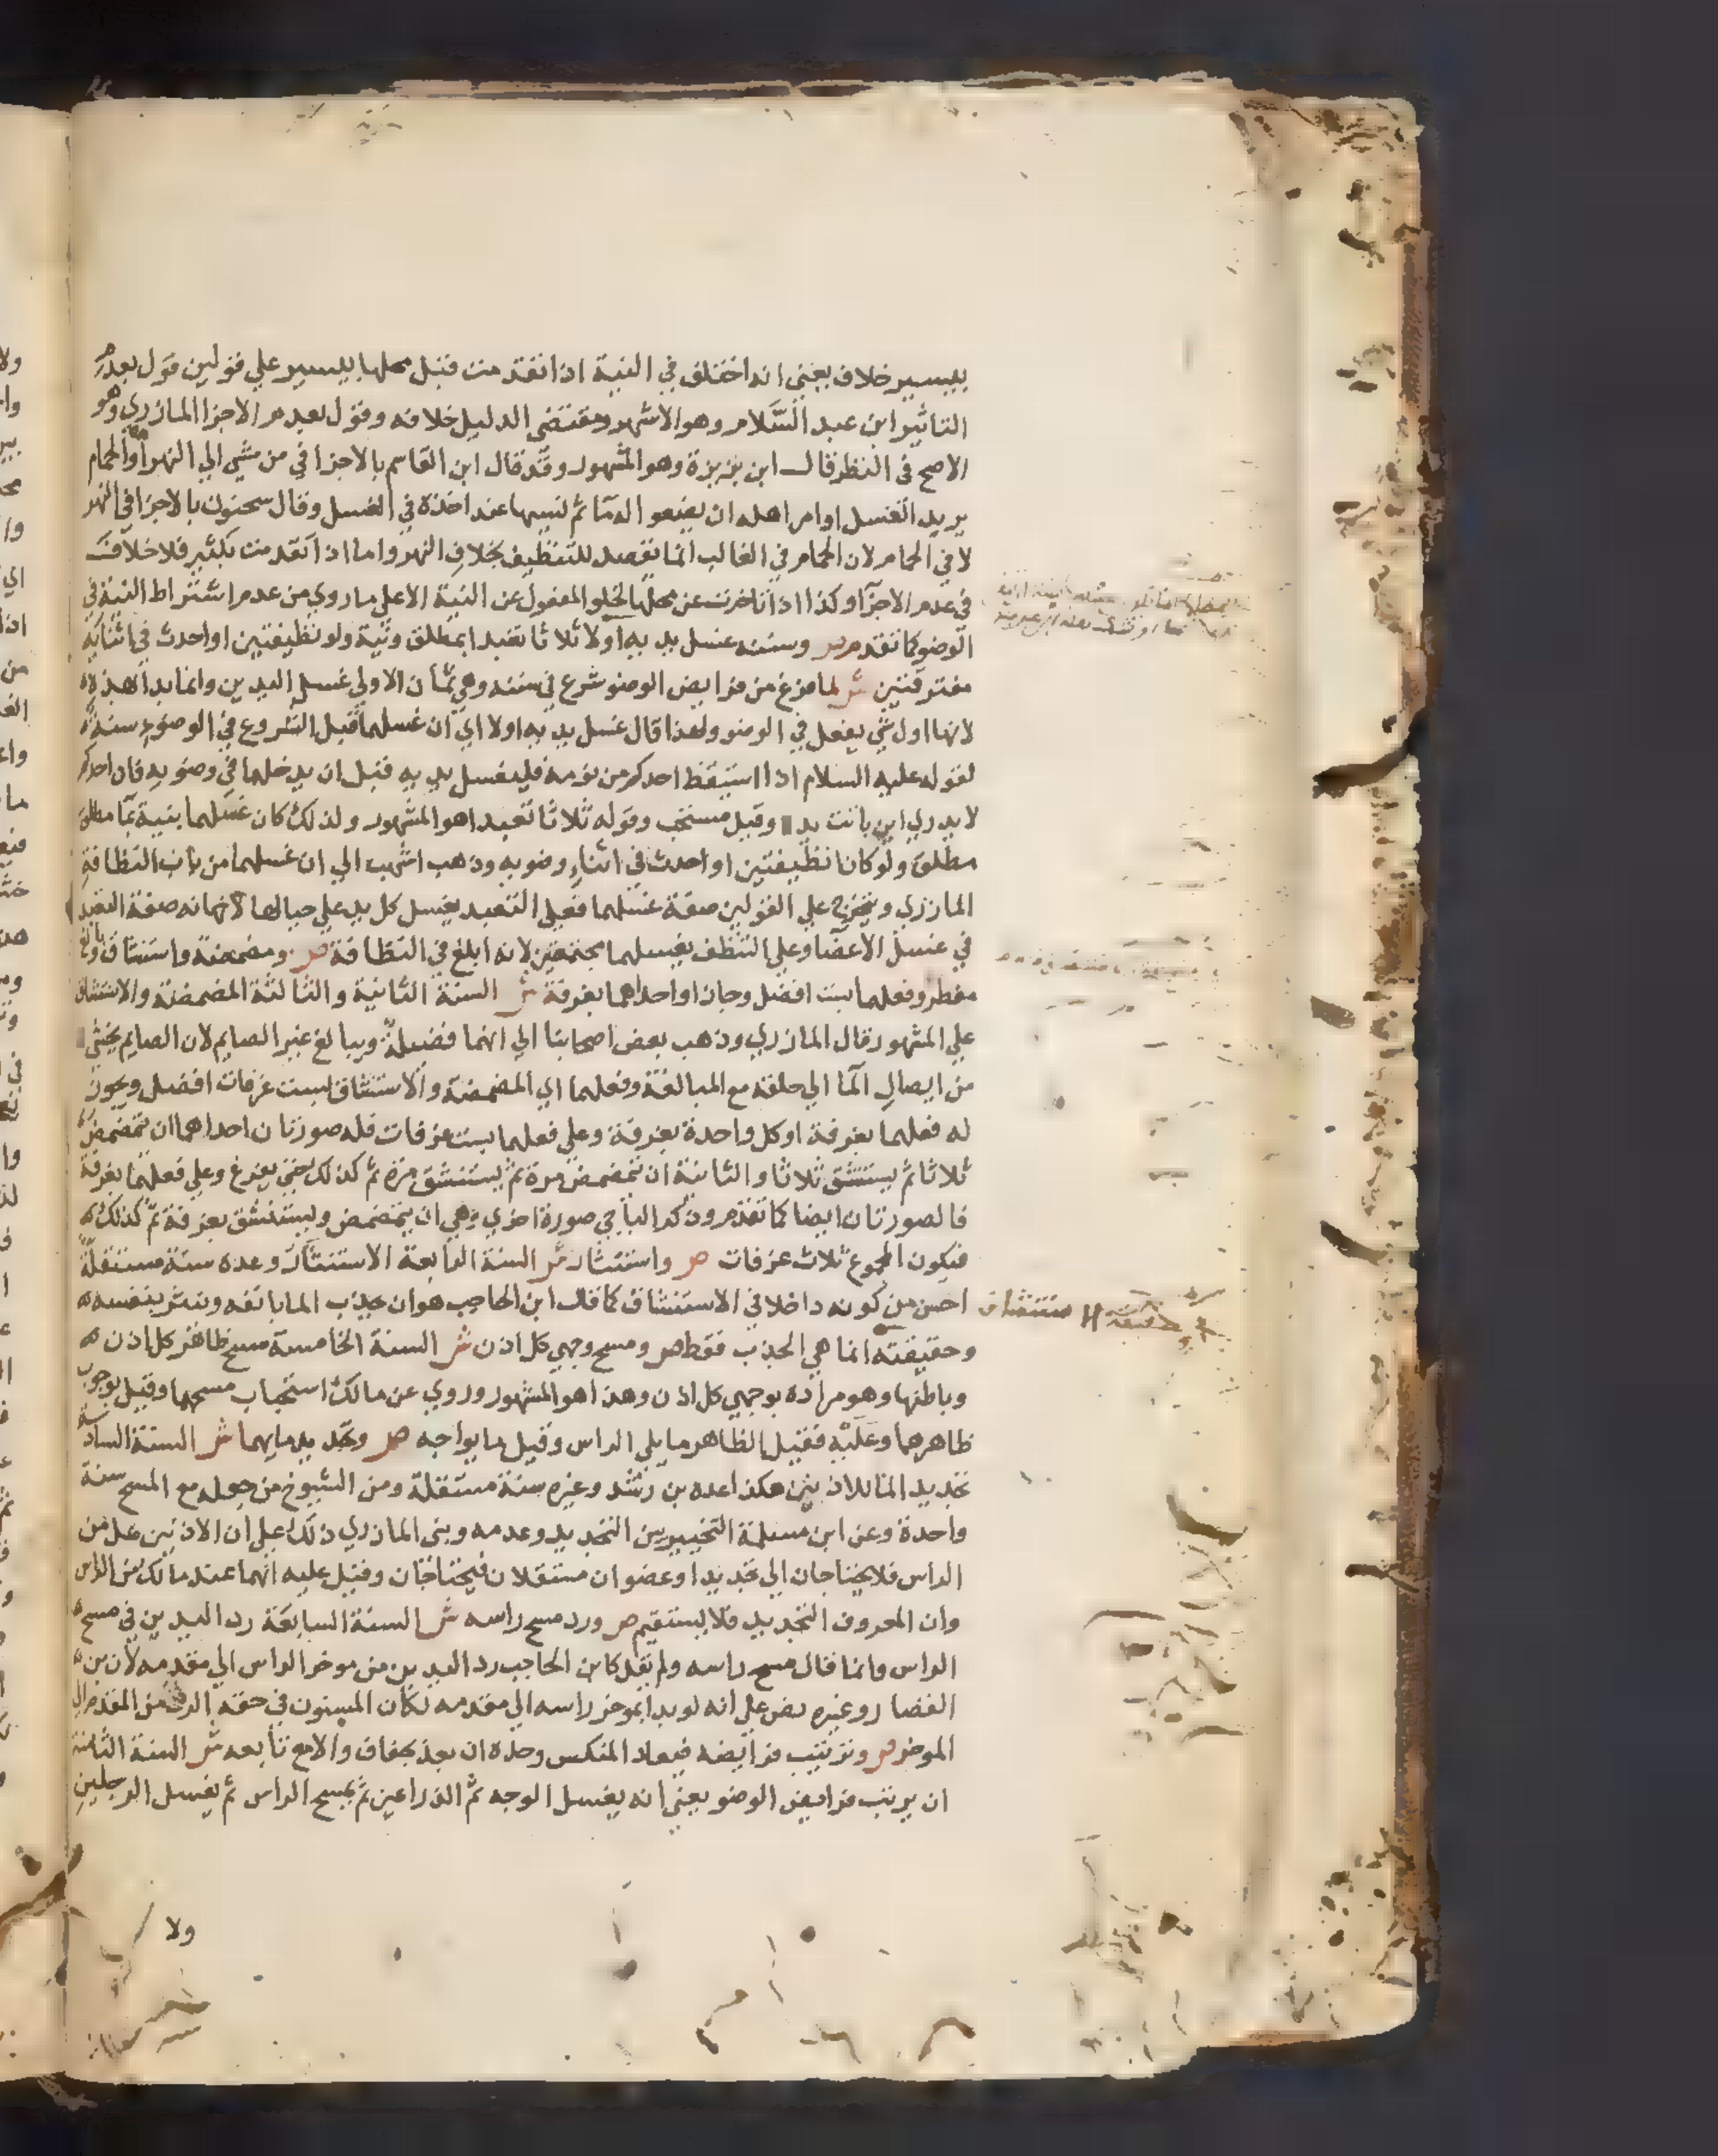 بيسير خلاف يعني انه اختلف في النية اذا تقدمت قبل محلها بيسير علي قولين قول بعدم
التاثير ابن عبد السَّلام وهو الاشهر ومقتضي الدليل خلافه وقول بعدم الاجزا المازري وهو
الاصح في النظر قال ابن بزيزة وهو المشهور وقد قال ابن القاسم بالاجزا في من مشي الي النهر او الحمام
يريد الغسل او امر اهله ان يضعوا له ما ثم نسيها عند اخذه في الغسل وقال سحنون بالاجزا في النهر
لا في الحمام لان الحمام في الغالب انما يقصد للتنظيف بخلاف النهر واما اذا تقدمت بكثير فلا خلاف
في عدم الاجزا وكذا اذا تاخرت عن محلها لخلو المفعول عن النية الا علي ما روي من عدم اشتراط النية في
الوضو كما تقدم ص وسننه غسل يديه اولا ثلاثا تعبدا بمطلق ونية ولو نظيفتين او احدث في اثنائه
مفترقتين ش لما فرغ من فرايض الوضو شرع في سننه وهي ثمان الاولي غسل اليدين وانما بدا بهذه
لانها اول شي يفعل في الوضو ولهذا قال غسل يديه اولا اي ان غسلهما قبل الشروع في الوضوء سنة
لقوله عليه السلام اذا استيقظ احدكم من نومه فليغسل يديه قبل ان يدخلهما في وضويه فان احدكم
لا يدري اين باتت يده وقيل مستحب وقوله ثلاثا تعبدا هو المشهور ولذلك كان غسلهما بنية بما مطلق
مطلق ولو كانا نظيفتين او احدث في اثناء وضويه وذهب اشهب الي ان غسلهما من باب النظافة
المازري ويتخرج علي القولين صفة غسلهما فعلي التعبد يغسل كل يد علي حيالها لانها نه صفة التعبد
في غسل الاعضا وعلي التنظف يغسلهما مجتمعتين لانه ابلغ في النظافة ص ومضمضة واستنشاق وبالغ
مفطر وفعلهما بست افضل وجازا او احداهما بغرفة ش السنة الثانية والثالثة المضمضة والاستنشاق
علي المشهور قال المازري وذهب بعض اصحابنا الي انهما فضيلة ويبالغ غير الصايم لان الصايم يخشي
من ايصال الما الي حلقه مع المبالغة وفعلهما اي المضمضة والاستنشاق بست غرفات افضل ويجوز
له فعلهما بغرفة او كل واحدة بغرفة وعلي فعلهما بست غرفات فله صورتان احداهما ان يتمضمض
ثلاثا ثم يستنشق ثلاثا والثانية ان يتمضمض مرة ثم يستنشق مرة ثم كذلك حتي يفرغ وعلي فعلهما بغرفة
فالصورتان ايضا كما تقدم وذكر الباجي صورة اخري وهي ان يتمضمض ويستنشق بغرفة ثم كذلك
فيكون المجموع ثلاث غرفات ص واستنثار ش السنة الرابعة الاستنثار وعده سنة مستقلة
احسن من كونه داخلا في الاستنشاق كما قال ابن الحاجب هو ان يجذب الما بانفه وينثر بنفسه
حقيقة الاستنشاق
وحقيقته انما هي الجذب فقط ص ومسح وجهي كل اذن ش السنة الخامسة مسح ظاهر كل اذن
وباطنها وهو مراده بوجهي كل اذن وهذا هو المشهور وروي عن مالك استحباب مسحهما وقيل بوجوب
ظاهرهما وعليه فقيل الظاهر ما يلي الراس وقيل ما يواجه ص وتجديد مايهما ش السنة السادسة
تجديد الما للاذنين هكذا عده بن رشد وغيره سنة مستقلة ومن الشيوخ من جعله مع المسح سنة
واحدة وعن ابن مسلمة التخيير بين التجديد وعدمه وبني المازري ذلك علي ان الاذنين هل من
الراس فلا يحتاجان الي تجديد او عضوان مستقلان فيحتاجان وقيل عليه انهما عند مالك من الراس
وان المعروف التجديد فلا يستقيم ص ورد مسح راسه ش السنة السابعة رد اليدين في مسح
الراس وانما قال مسح راسه ولم يقل كابن الحاجب رد اليدين من موخر الراس الي مقدمه لان بن
القصار وغيره نص علي انه لو بدا بموخر راسه الي مقدمه لكان المسنون في حقه الرد من المقدم الي
الموخر ص وترتيب فرايضه فيعاد المنكس وحده ان بعد بجفاف والا مع تابعه ش السنة الثامنة
ان يرتب فرايض الوضو يعني انه يغسل الوجه ثم الذراعين ثم يمسح الراس ثم يغسل الرجلين
ولا